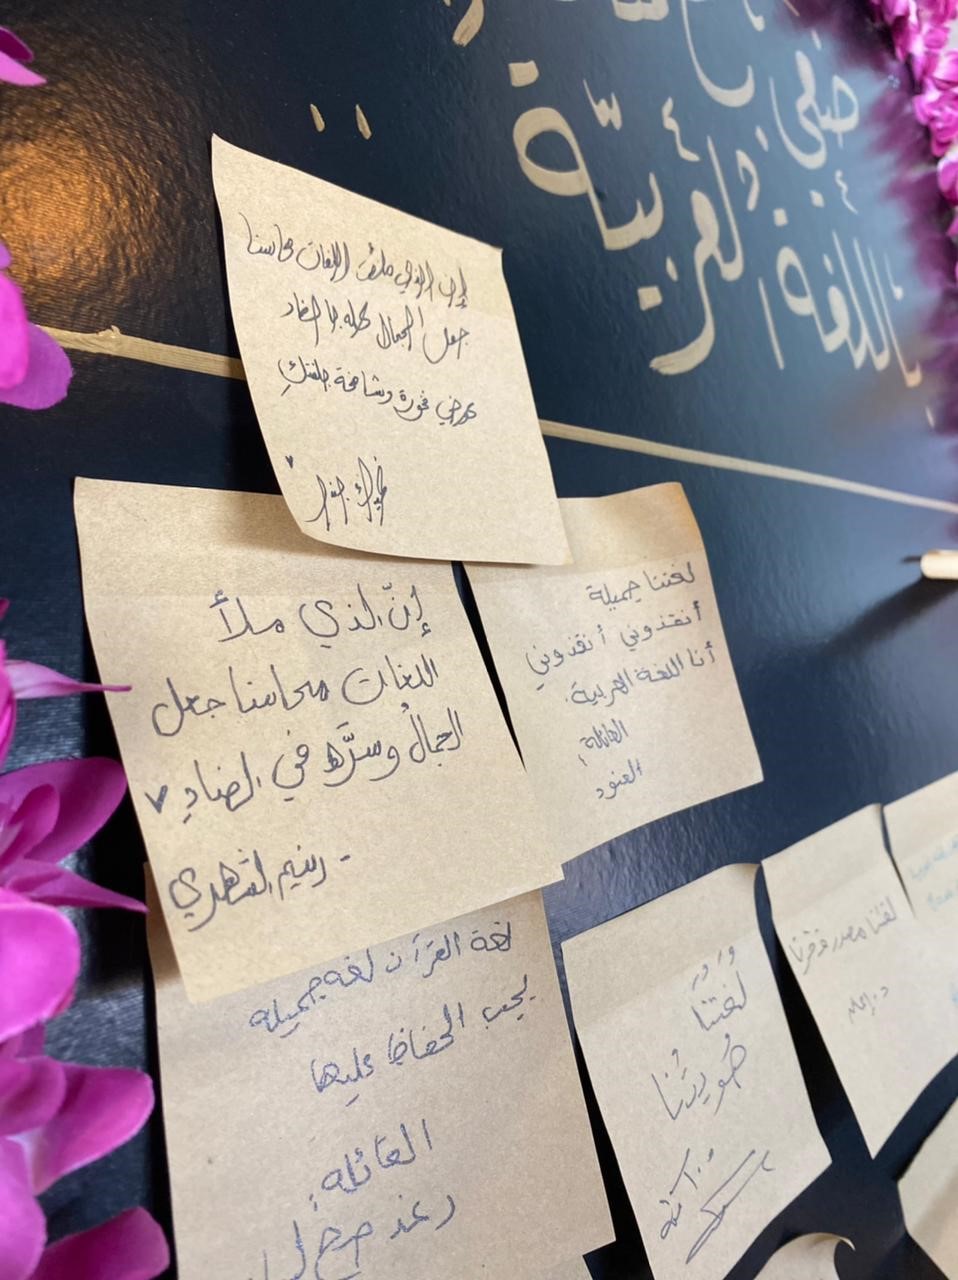 صِفي
باللغة العربيّة
إن الذي ملأ اللغات محاسنا
جعل الجمال كله بالضاد
إنّ الذي ملأ
اللغات محاسنا جعل
الجمالَ وسرَّه في الضادِ
- رنيم الشهري
لغتنا جميلة
أنقذوني أنقذوني
أنا اللغة العربية.
القائلة:
العنود
لغة القرآن لغه جميله
يجب الحفاظ عليها
القائله:
رغد
لُغتُنَا
هُويتُنا
لغتنا مصدر فخرنا